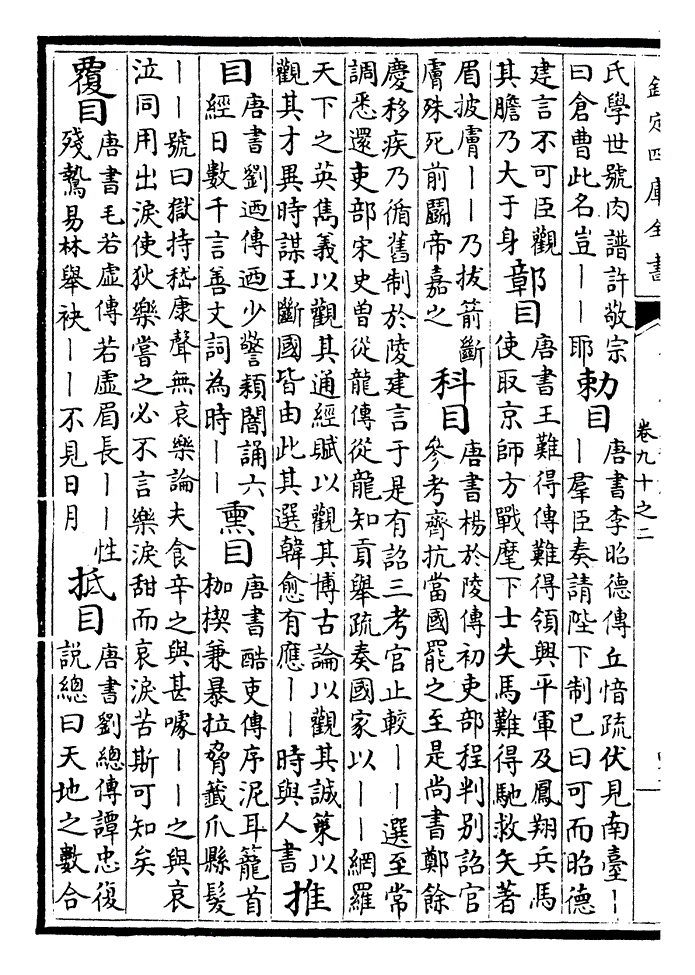 欽定四庫全書
卷九十之二
氏學世號肉譜許敬宗
曰倉曹此名豈丨丨耶
勅目
唐書李昭德傳丘愔疏伏見南臺丨
丨羣臣奏請陛下制已曰可而昭德
建言不可臣觀
其膽乃大于身
鄣目
唐書王難得傳難得領興平軍及鳳翔兵馬
使取京師方戰麾下士失馬難得馳救矢著
眉披膚丨丨乃拔箭斷
膚殊死前鬭帝嘉之
科目
唐書楊於陵傳初吏部程判別詔官
參考齊抗當國罷之至是尚書鄭餘
慶移疾乃循舊制於陵建言于是有詔三考官止較丨丨選至常
調悉還吏部宋史曾從龍傳從龍知貢舉疏奏國家以丨丨網羅
天下之英雋義以觀其通經賦以觀其博古論以觀其誠策以
觀其才異時謀王斷國皆由此其選韓愈有應丨丨時與人書
推
目
唐書劉迺傳迺少警穎闇誦六
經日數千言善文詞為時丨丨
熏目
唐書酷吏傳序泥耳籠首
枷楔兼暴拉脅籤爪縣髮
丨丨號曰獄持嵇康聲無哀樂論夫食辛之與甚噱丨丨之與哀
泣同用出淚使狄樂嘗之必不言樂淚甜而哀淚苦斯可知矣
覆目
唐書毛若虛傳若虛眉長丨丨性
殘鷙易林舉袂丨丨不見日月
抵目
唐書劉總傳譚忠復
説總曰天地之數合